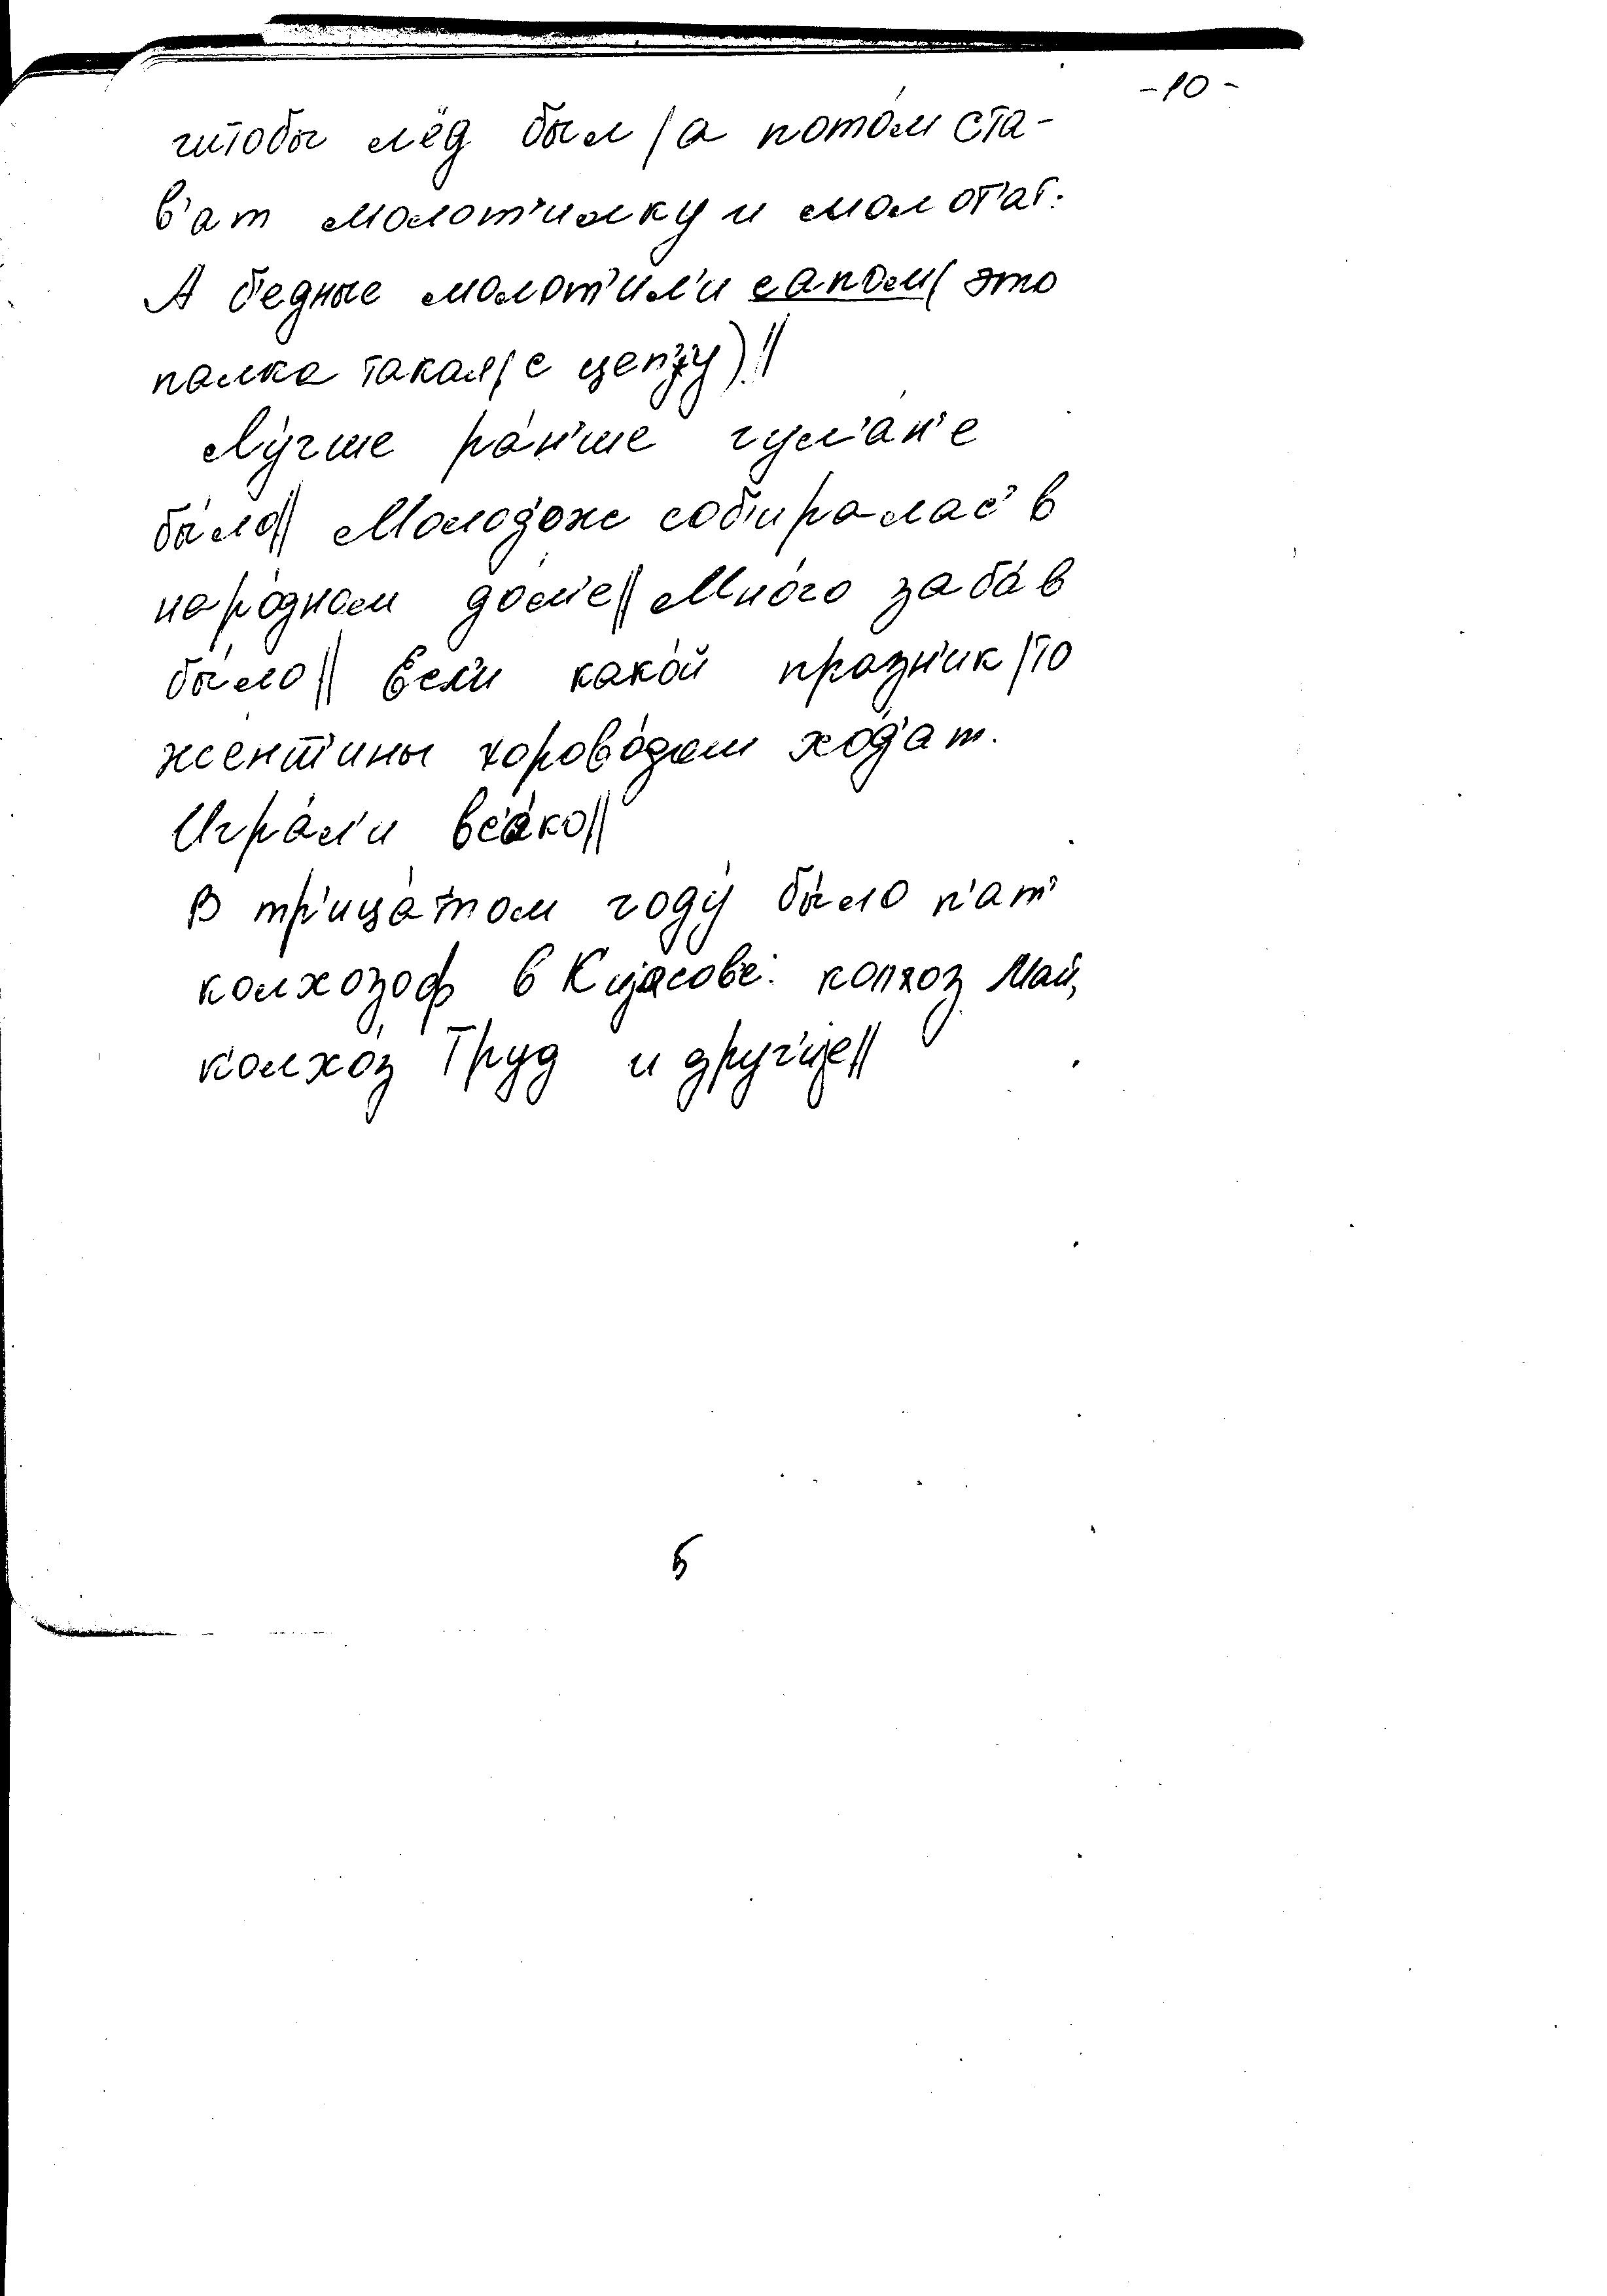 -10-
чтобы лёд был / а пото́м ста-
в'ат молот'илку и молот'ат.
А б'едные молот'ил'и сапом (это
палка такая / с цеп'jу) //
Лу́чше ра́н'ше гул'а́н'е
бы́ло // Молод'ож соб'иралас' в
наро́дном до́м'е // Мно́го заба́в
бы́ло // Есл'и како́й празн'ик / то
же́нт'ины хорово́дом хо́д'ат.
Игра́л'и вс'а́ко //
В тр'ица́том году́ бы́ло п'ат'
колхозоф в К'ијасов'е: колхоз Май,
колхо́з Труд и друг'ије //
5